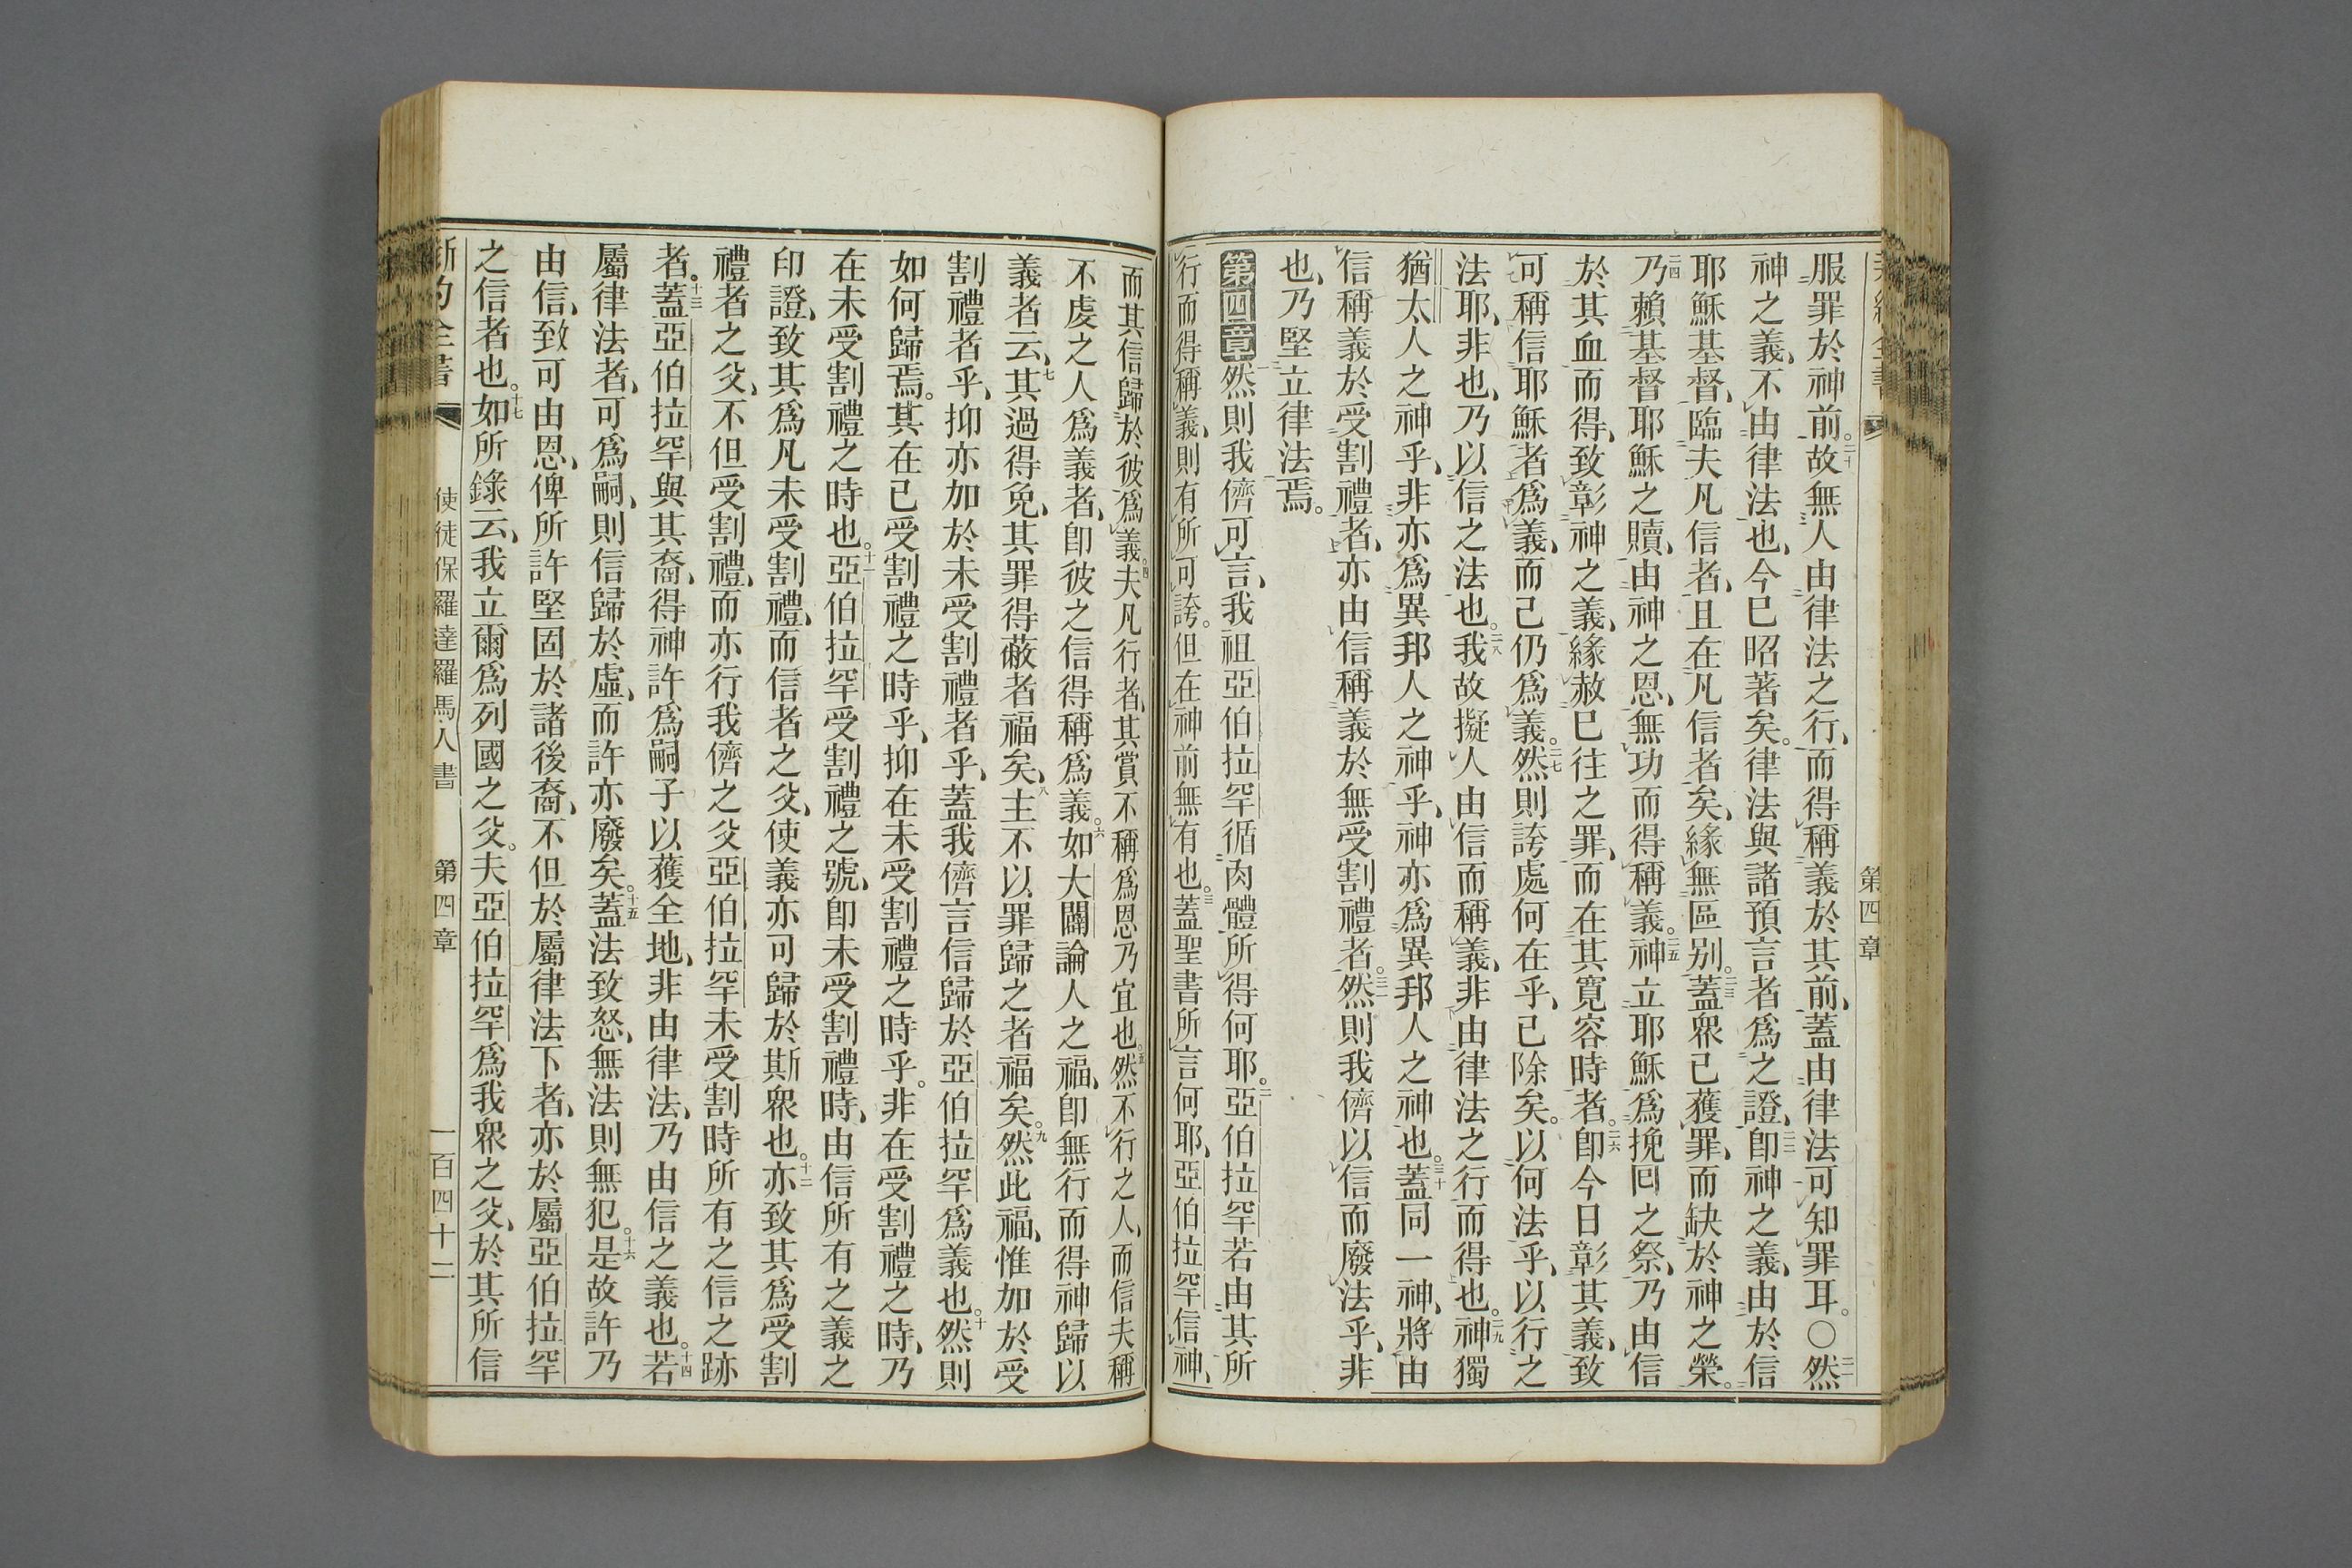 新約全書
第四章
服罪於神前。二十故無人由律法之行、而得稱義於其前、蓋由律法可知罪耳。〇二一然
神之義、不由律法也、今已昭著矣。律法與諸預言者爲之證、二二卽神之義、由於信
耶穌基督、臨夫凡信者、且在凡信者矣、緣無區别。二三蓋衆已獲罪、而缺於神之榮。
二四乃賴基督耶穌之贖、由神之恩、無功而得稱義。二五神立耶穌爲挽回之祭、乃由信
於其血而得、致彰神之義、緣赦已往之罪、而在其寬容時者。二六卽今日彰其義、致
可稱信耶穌者爲義、而己仍爲義。二七然則誇處何在乎、已除矣。以何法乎、以行之
法耶、非也、乃以信之法也。二八我故擬人由信而稱義、非由律法之行而得也。二九神獨
猶太人之神乎、非亦爲異邦人之神乎、神亦爲異邦人之神也。三十蓋同一神、將由
信稱義於受割禮者、亦由信稱義於無受割禮者。三一然則我儕以信而廢法乎、非
也、乃堅立律法焉。
第四章一然則我儕可言、我祖亞伯拉罕循肉體所得何耶。二亞伯拉罕若由其所
行而得稱義、則有所可誇。但在神前無有也。三蓋聖書所言何耶、亞伯拉罕信神、
而其信歸於彼爲義。四夫凡行者、其賞不稱爲恩乃宜也。五然不行之人、而信夫稱
不虔之人爲義者、卽彼之信得稱爲義。六如大闢論人之福、卽無行而得神歸以
義者云、七其過得免、其罪得蔽者福矣、八主不以罪歸之者福矣。九然此福、惟加於受
割禮者乎、抑亦加於未受割禮者乎、蓋我儕言信歸於亞伯拉罕爲義也。十然則
如何歸焉。其在已受割禮之時乎、抑在未受割禮之時乎。非在受割禮之時、乃
在未受割禮之時也。十一亞伯拉罕受割禮之號、卽未受割禮時、由信所有之義之
印證、致其爲凡未受割禮、而信者之父、使義亦可歸於斯衆也。十二亦致其爲受割
禮者之父、不但受割禮、而亦行我儕之父亞伯拉罕未受割時所有之信之跡
者。十三蓋亞伯拉罕與其裔、得神許爲嗣子以獲全地、非由律法、乃由信之義也。十四若
屬律法者、可爲嗣、則信歸於虛、而許亦廢矣。十五蓋法致怒、無法則無犯。十六是故許乃
由信、致可由恩、俾所許堅固於諸後裔、不但於屬律法下者、亦於屬亞伯拉罕
之信者也。十七如所錄云、我立爾爲列國之父。夫亞伯拉罕爲我衆之父、於其所信
新約全書
使徒保羅達羅馬人書
第四章
一百四十二